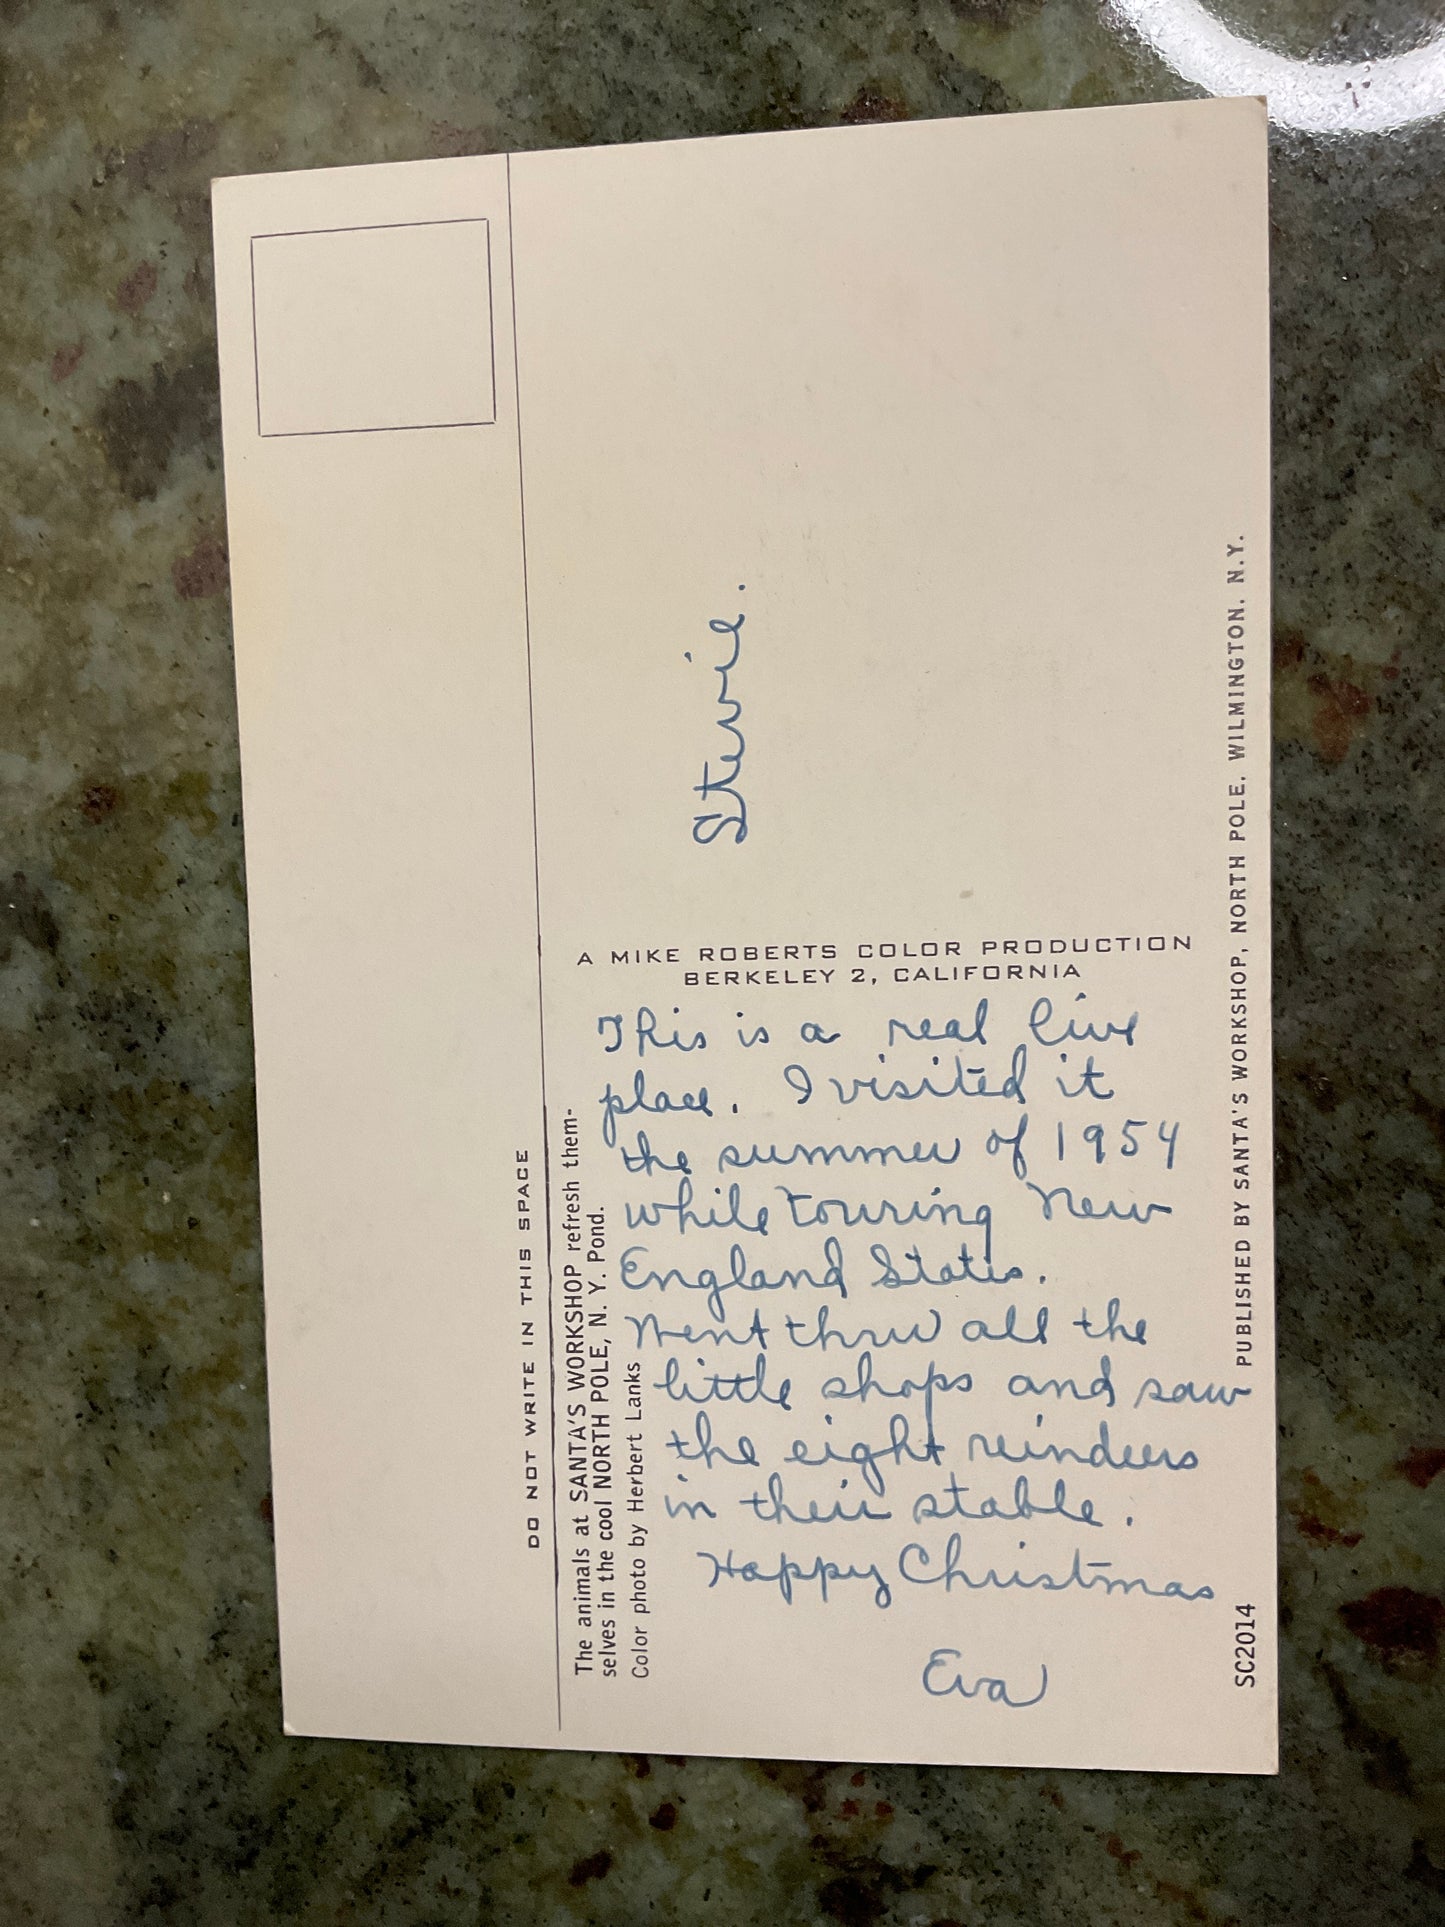 DO NOT WRITE IN THIS SPACE
The animals at SANTA'S WORKSHOP refresh them-
selves in the cool NORTH POLE, N. Y. Pond.
Color photo by Herbert Lanks
A MIKE ROBERTS COLOR PRODUCTION
BERKELEY 2, CALIFORNIA
Stevie.
This is a real live
place. I visited it
the summer of 1954
while touring New
England States.
Went thru all the
little shops and saw
the eight reindeers
in their stable.
Happy Christmas
Eva
SC2014
PUBLISHED BY SANTA'S WORKSHOP, NORTH POLE, WILMINGTON, N.Y.